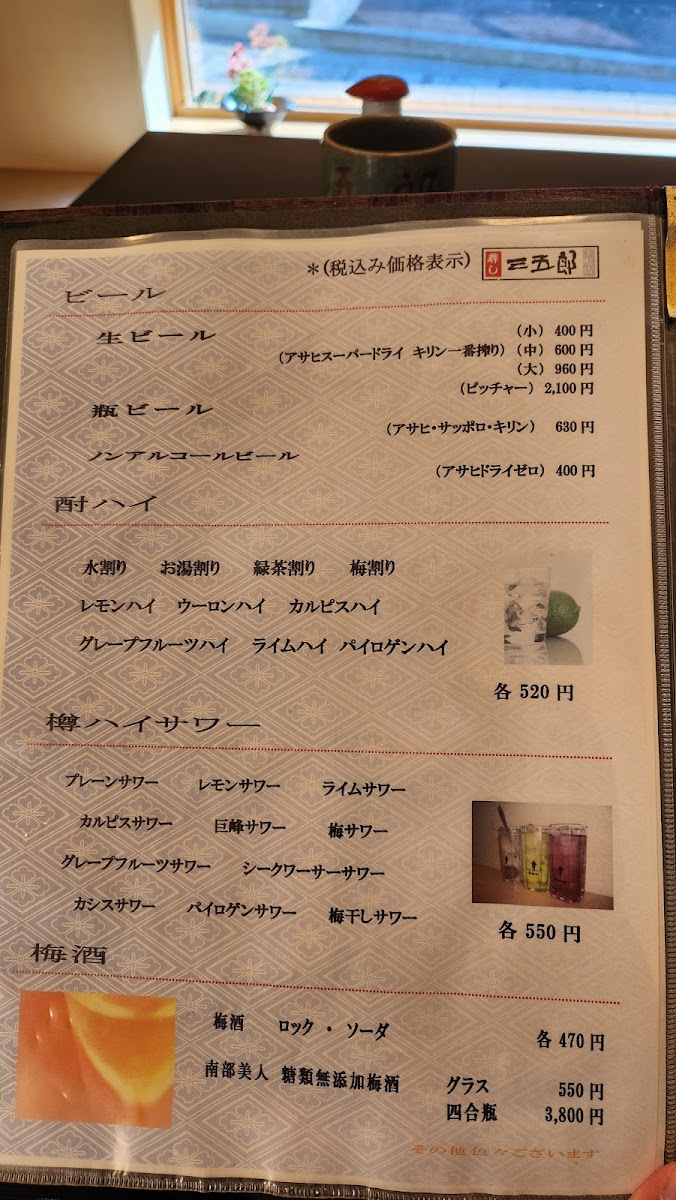 *(税込み価格表示) 寿し 三五郎
ビール
生ビール
(小) 400 円
(アサヒスーパードライ キリン一番搾り) (中) 600 円
(大) 960 円
(ピッチャー) 2,100 円
瓶ビール
(アサヒ・サッポロ・キリン) 630 円
ノンアルコールビール
(アサヒドライゼロ) 400 円
酎ハイ
水割り お湯割り 緑茶割り 梅割り
レモンハイ ウーロンハイ カルピスハイ
グレープフルーツハイ ライムハイ パイロゲンハイ
各 520 円
樽ハイサワー
プレーンサワー レモンサワー ライムサワー
カルピスサワー 巨峰サワー 梅サワー
グレープフルーツサワー シークワーサーサワー
カシスサワー パイロゲンサワー 梅干しサワー
各 550 円
梅酒
梅酒 ロック ・ ソーダ 各 470 円
南部美人 糖類無添加梅酒 グラス 550 円
四合瓶 3,800 円
その他色々ございます